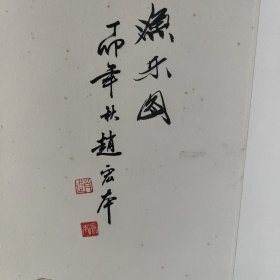 渔乐图
丁卯年秋赵宏本